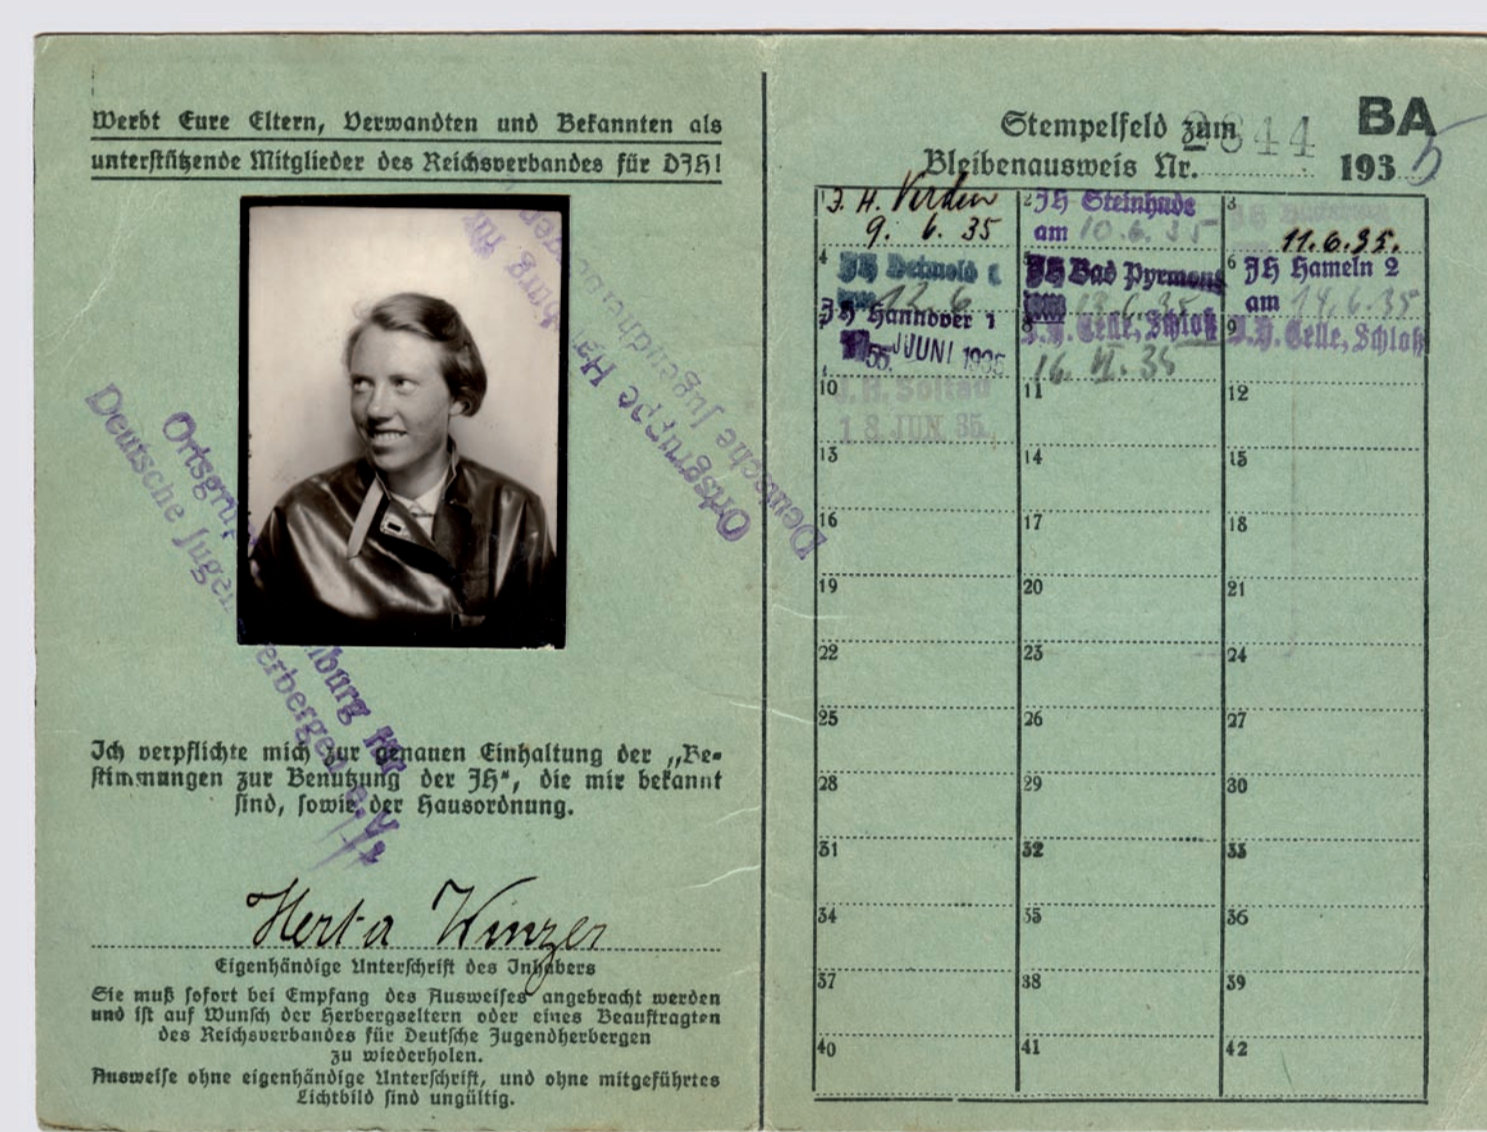 Werbt Eure Eltern, Verwandten und Bekannten als
unterstützende Mitglieder des Reichsverbandes für DJH!
Ortsgruppe
Deutsche Jugendherbergen
Ortsgruppe
Deutsche
Ich verpflichte mich zur genauen Einhaltung der „Be-
stimmungen zur Benutzung der JH“, die mir bekannt
sind, sowie der Hausordnung.
Herta Winzer
Eigenhändige Unterschrift des Inhabers
Sie muß sofort bei Empfang des Ausweises angebracht werden
und ist auf Wunsch der Herbergseltern oder eines Beauftragten
des Reichsverbandes für Deutsche Jugendherbergen
zu wiederholen.
Ausweise ohne eigenhändige Unterschrift, und ohne mitgeführtes
Lichtbild sind ungültig.
Stempelfeld zum BA
Bleibenausweis Nr. 1935
1 J. H. Verden
9. 6. 35
2 JH Steinhude
am 10.6.35
3
11.6.35.
4 JH Detmold
12.6
JH Bad Pyrmont
13.6.35
6 JH Hameln 2
am 14.6.35
JH Hannover 1
JUNI 1935
8 J.H. Celle, Schloß
16. VI. 35
9 J.H. Celle, Schloß
10 J. H. Soltau
18. JUN. 35
11
12
13
14
15
16
17
18
19
20
21
22
23
24
25
26
27
28
29
30
31
32
33
34
35
36
37
38
39
40
41
42